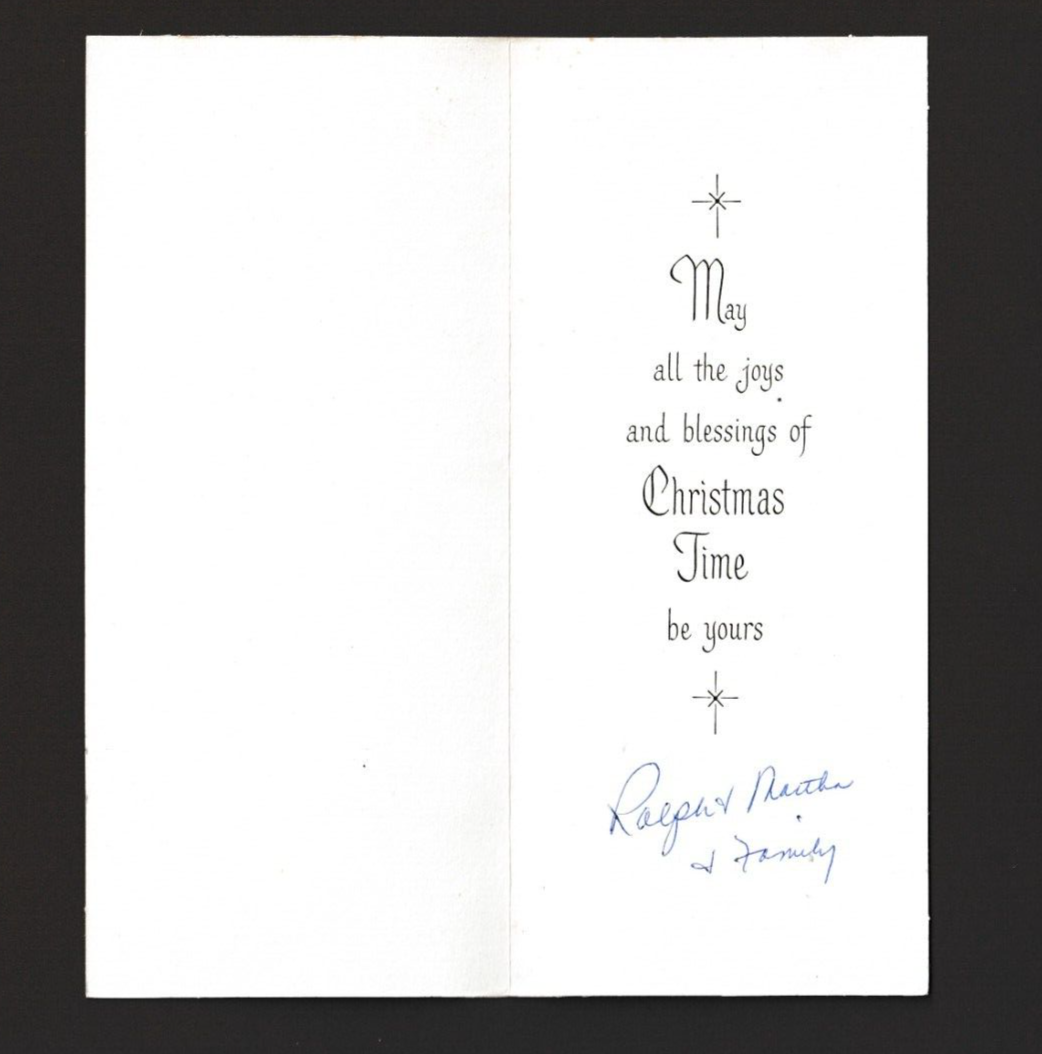 May
all the joys
and blessings of
Christmas
Time
be yours
Ralph & Martha
& Family